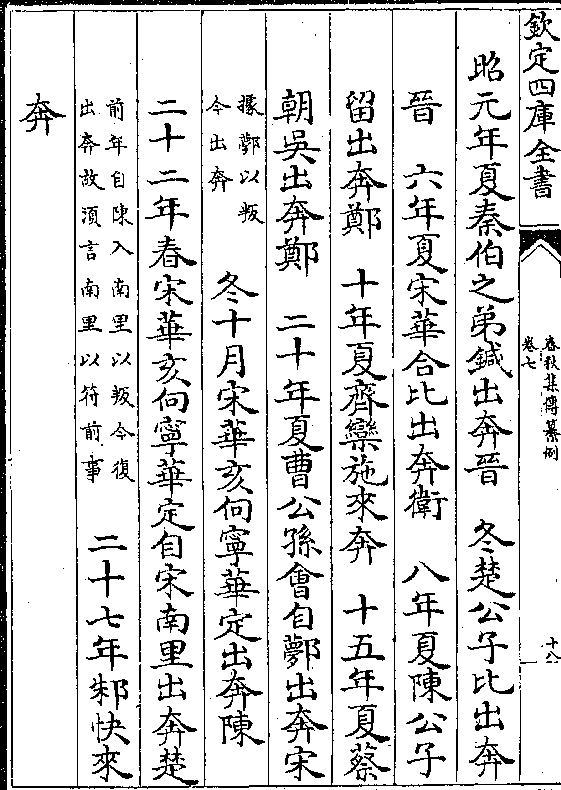 欽定四庫全書
春秋集傳纂例
卷七
十八
昭元年夏秦伯之弟鍼出奔晉　冬楚公子比出奔
晉　六年夏宋華合比出奔衛　八年夏陳公子
留出奔鄭　十年夏齊欒施來奔　十五年夏蔡
朝吳出奔鄭　二十年夏曹公孫會自鄸出奔宋
據鄸以叛
今出奔
冬十月宋華亥向寧華定出奔陳
二十二年春宋華亥向寧華定自宋南里出奔楚
前年自陳入南里以叛今復
出奔故須言南里以符前事
二十七年邾快來
奔